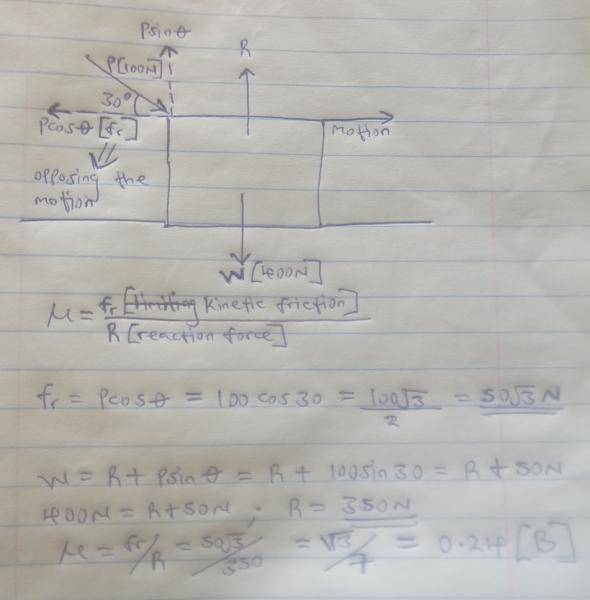 Psinθ
R
P[100N]
30°
Pcosθ [fr]
motion
opposing the
motion
W [400N]
μ = fr [limiting kinetic friction]
R [reaction force]
fr = Pcosθ = 100 cos30 = 100√3/2 = 50√3 N
W = R + Psinθ = R + 100sin30 = R + 50N
400N = R + 50N ; R = 350N
μ = fr/R = 50√3/350 = √3/7 = 0.24 [B]